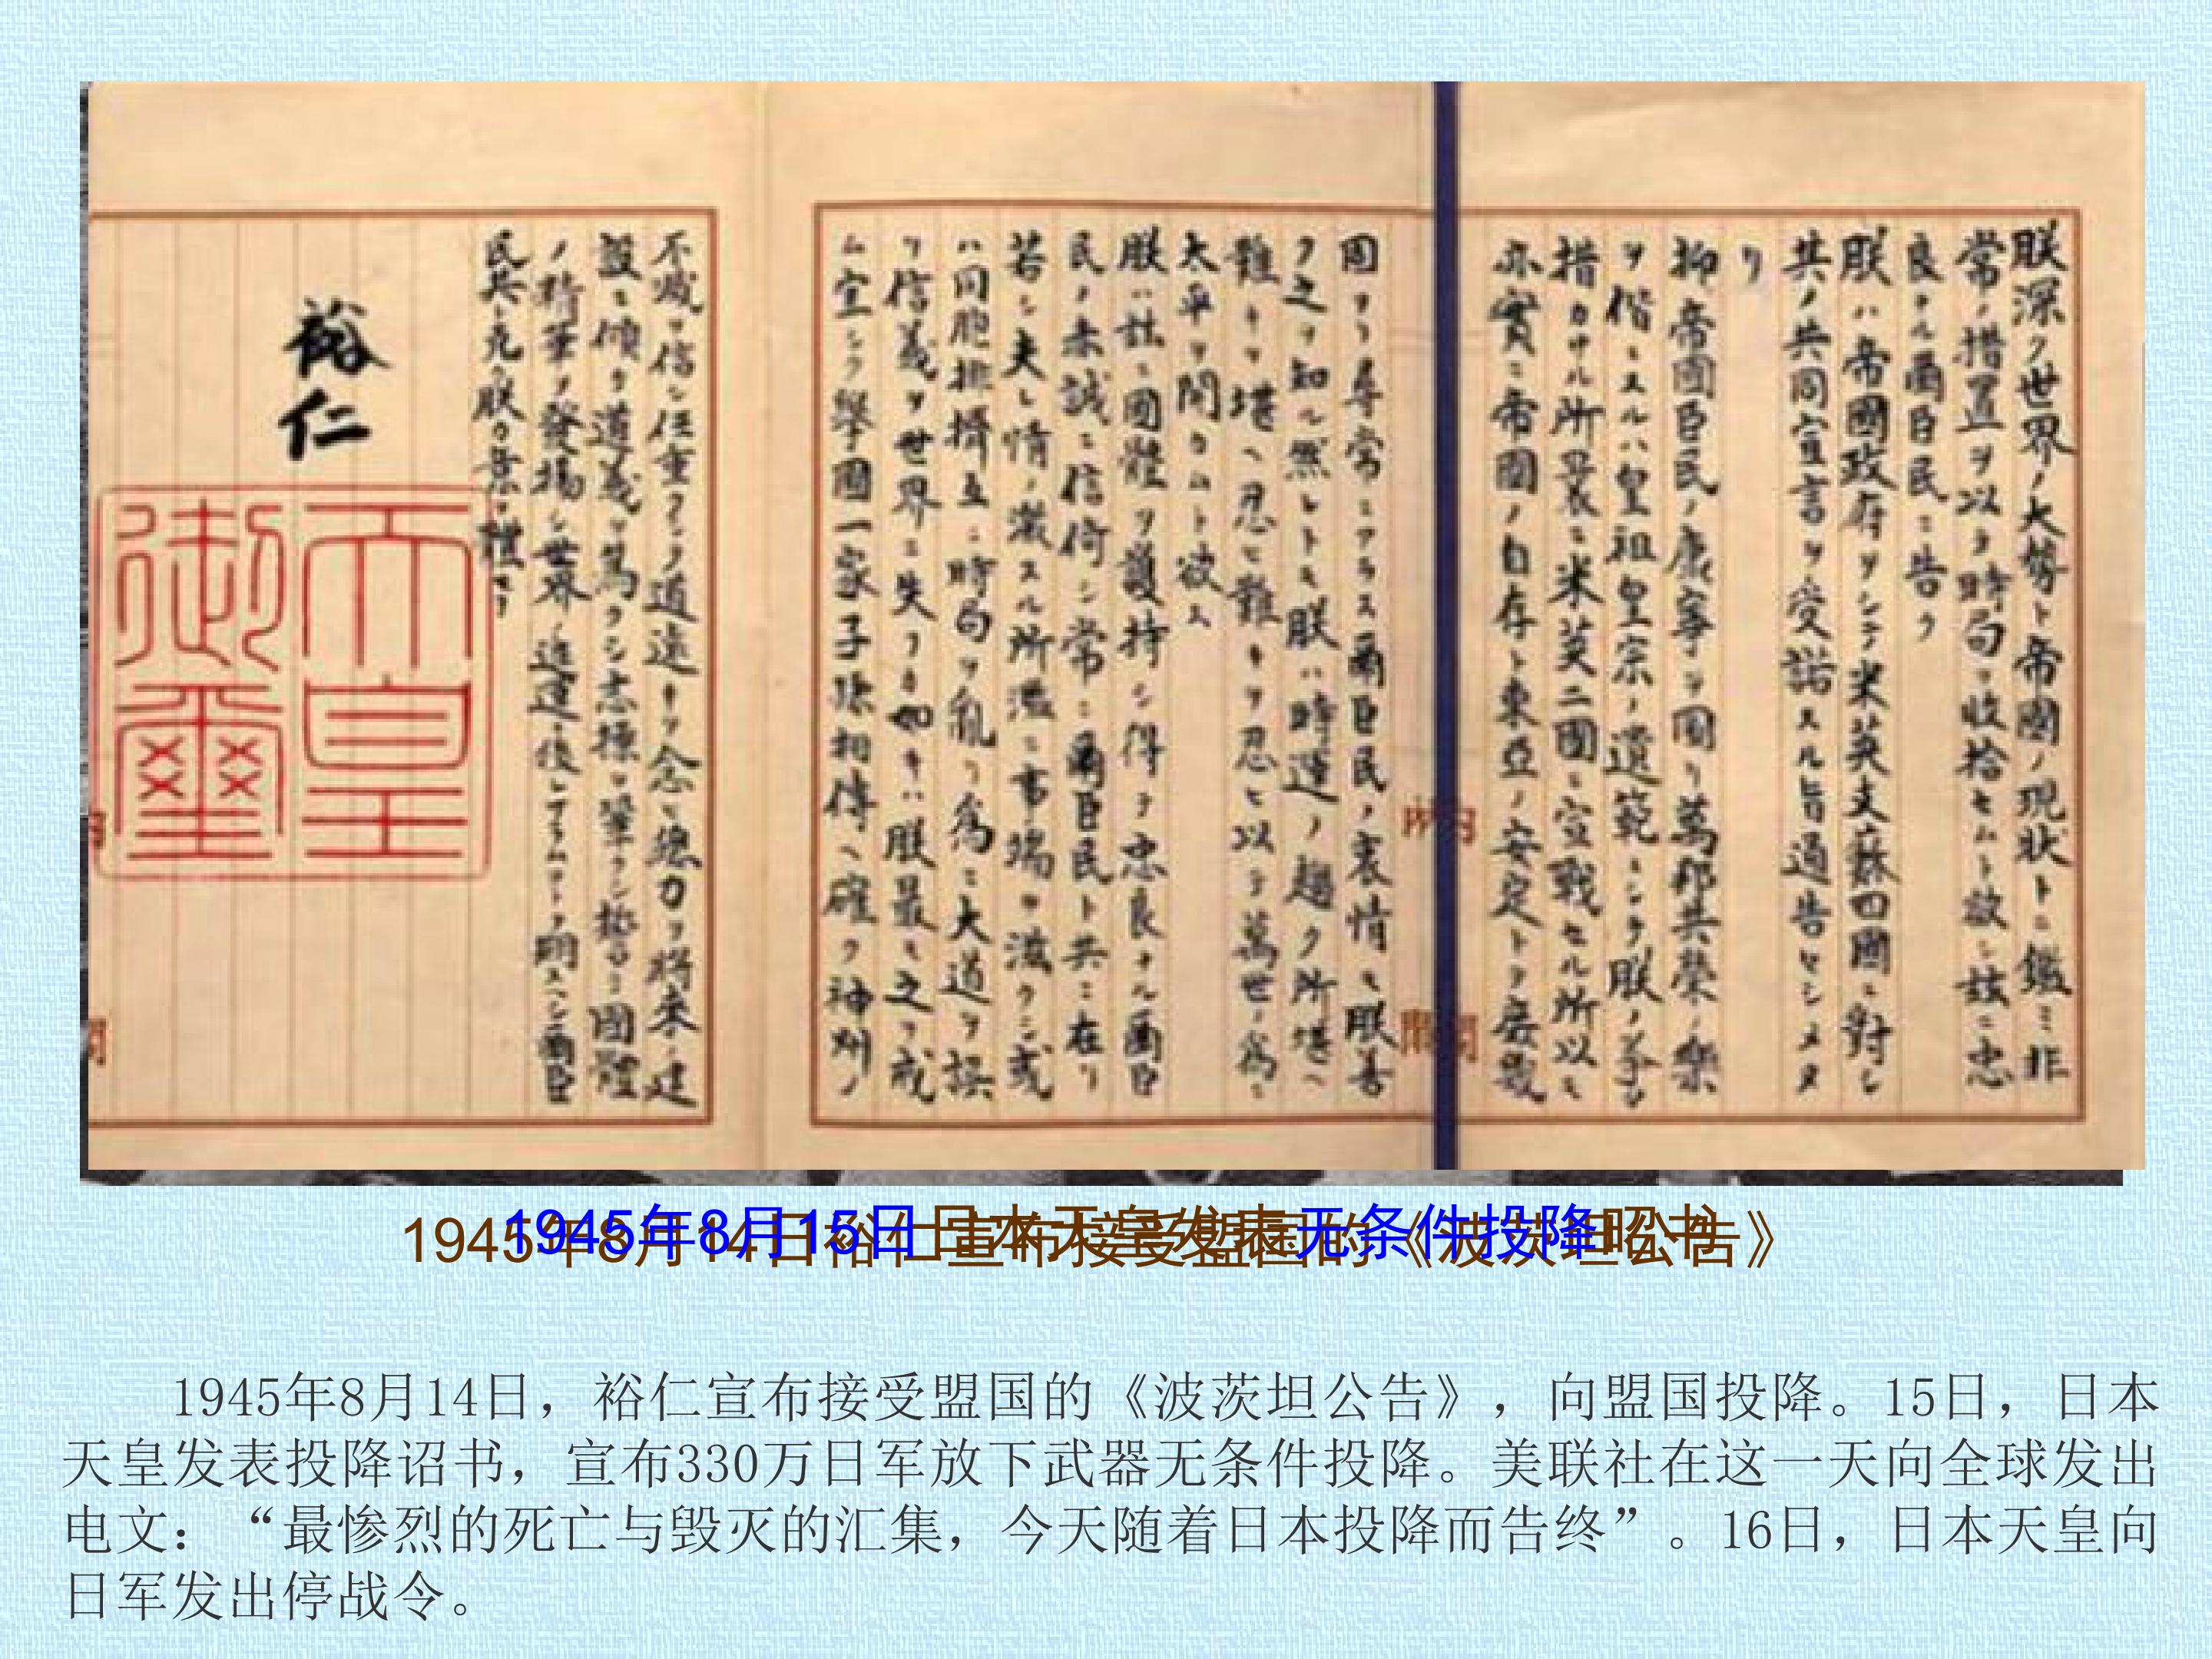 朕深ク世界ノ大勢ト帝國ノ現狀トニ鑑ミ非
常ノ措置ヲ以テ時局ヲ收拾セムト欲シ茲ニ忠
良ナル爾臣民ニ告ク
朕ハ帝國政府ヲシテ米英支蘇四國ニ對シ
其ノ共同宣言ヲ受諾スル旨通告セシメタ
リ
抑帝國臣民ノ康寧ヲ圖リ萬邦共榮ノ樂
ヲ偕ニスルハ皇祖皇宗ノ遺範ニシテ朕ノ拳々
措カサル所曩ニ米英二國ニ宣戰セル所以モ
亦實ニ帝國ノ自存ト東亞ノ安定トヲ庶幾
固ヨリ尋常ニアラス爾臣民ノ衷情モ朕善
ク之ヲ知ル然レトモ朕ハ時運ノ趨ク所堪ヘ
難キヲ堪ヘ忍ヒ難キヲ忍ヒ以テ萬世ノ爲ニ
太平ヲ開カムト欲ス
朕ハ茲ニ國體ヲ護持シ得テ忠良ナル爾臣
民ノ赤誠ニ信倚シ常ニ爾臣民ト共ニ在リ
若シ夫レ情ノ激スル所濫ニ事端ヲ滋クシ或
ハ同胞排擠互ニ時局ヲ亂リ爲ニ大道ヲ誤
リ信義ヲ世界ニ失フカ如キハ朕最モ之ヲ戒
ム宜シク擧國一家子孫相傳ヘ確ク神州ノ
不滅ヲ信シ任重クシテ道遠キヲ念ヒ總力ヲ將來ノ建
設ニ傾ケ道義ヲ篤クシ志操ヲ鞏クシ誓テ國體
ノ精華ヲ發揚シ世界ノ進運ニ後レサラムコトヲ期スヘシ爾臣
民其レ克ク朕カ意ヲ體セヨ
裕仁
天皇
御璽
1945年8月15日日本天皇发表无条件投降昭书
1945年8月14日裕仁宣布接受盟国的《波茨坦公告》
1945年8月14日，裕仁宣布接受盟国的《波茨坦公告》，向盟国投降。15日，日本
天皇发表投降诏书，宣布330万日军放下武器无条件投降。美联社在这一天向全球发出
电文：“最惨烈的死亡与毁灭的汇集，今天随着日本投降而告终”。16日，日本天皇向
日军发出停战令。